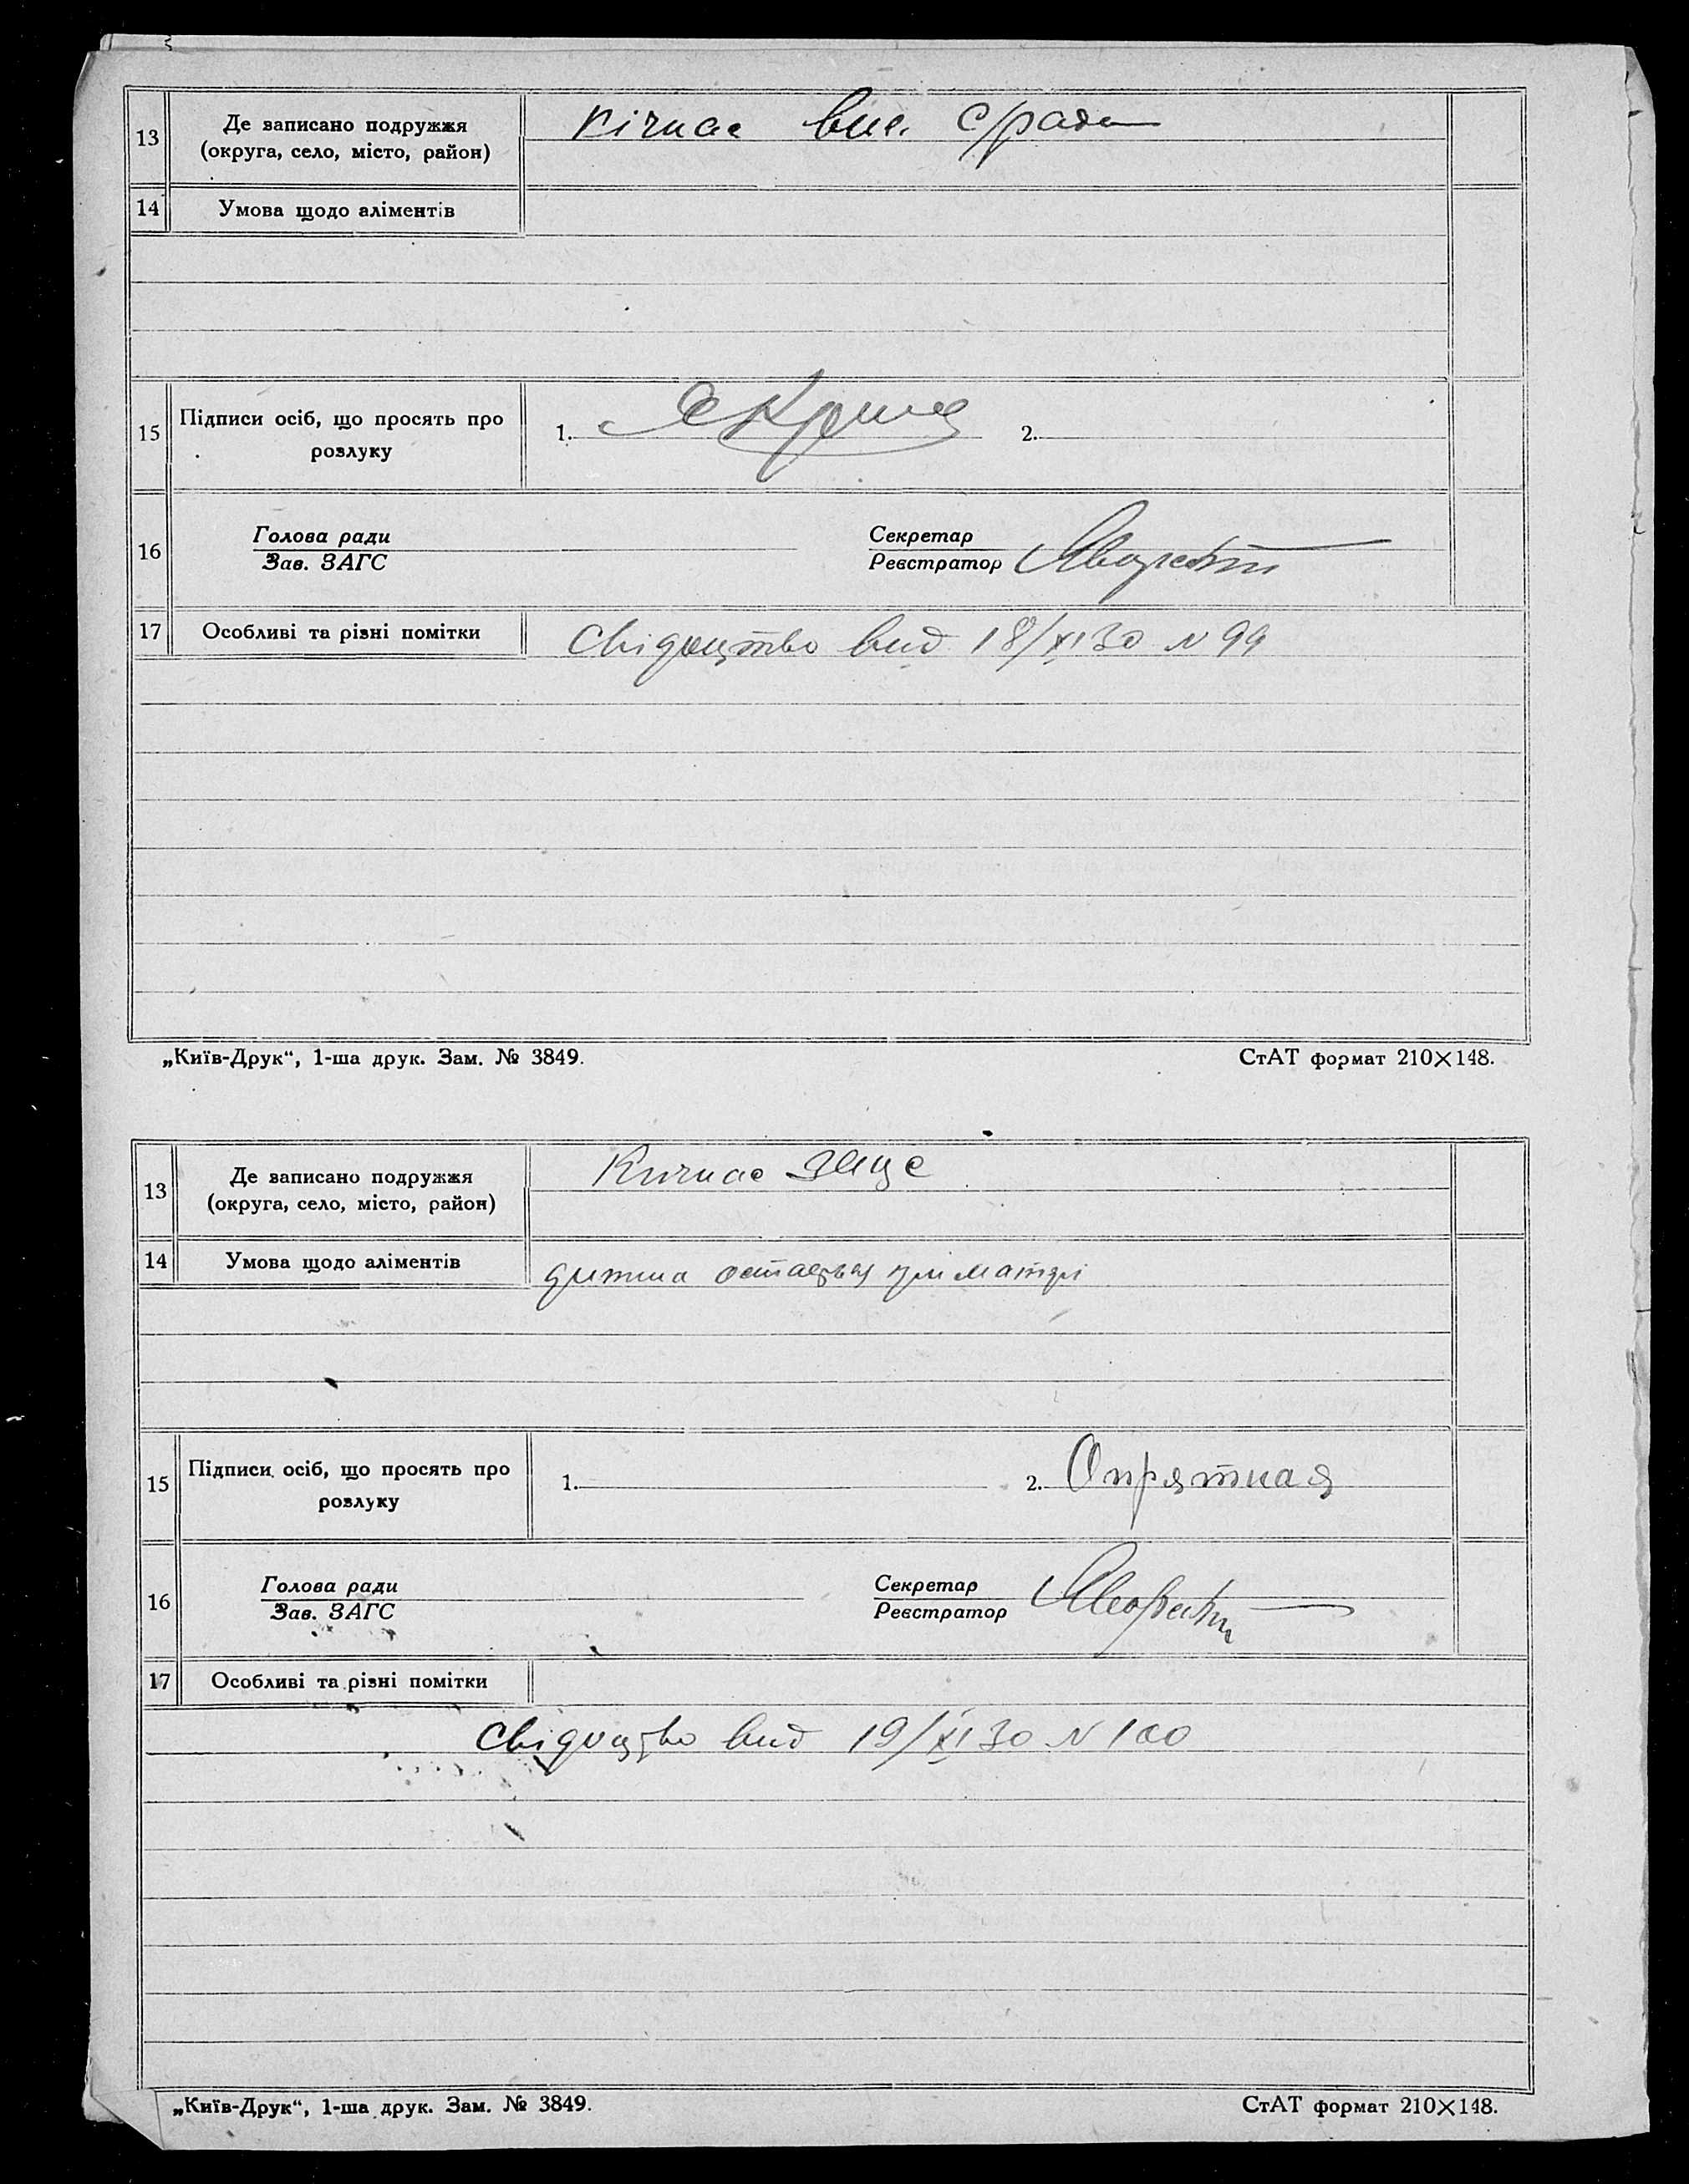 13
Де записано подружжя
(округа, село, місто, район)
Кічкас с/ради
14
Умова щодо аліментів
15
Підписи осіб, що просять про
розлуку
1.
2.
16
Голова ради
Зав. ЗАГС
Секретар
Реєстратор
17
Особливі та різні помітки
Свідоцтво вид 18/XI 30 N 99
„Київ-Друк“, 1-ша друк. Зам. № 3849.
СтАТ формат 210×148.
13
Де записано подружжя
(округа, село, місто, район)
Кичкас
14
Умова щодо аліментів
дитина остаеться при матері
15
Підписи осіб, що просять про
розлуку
1.
2. Опрятная
16
Голова ради
Зав. ЗАГС
Секретар
Реєстратор
17
Особливі та різні помітки
Свідоцтво вид 19/XI 30 N 100
„Київ-Друк“, 1-ша друк. Зам. № 3849.
СтАТ формат 210×148.